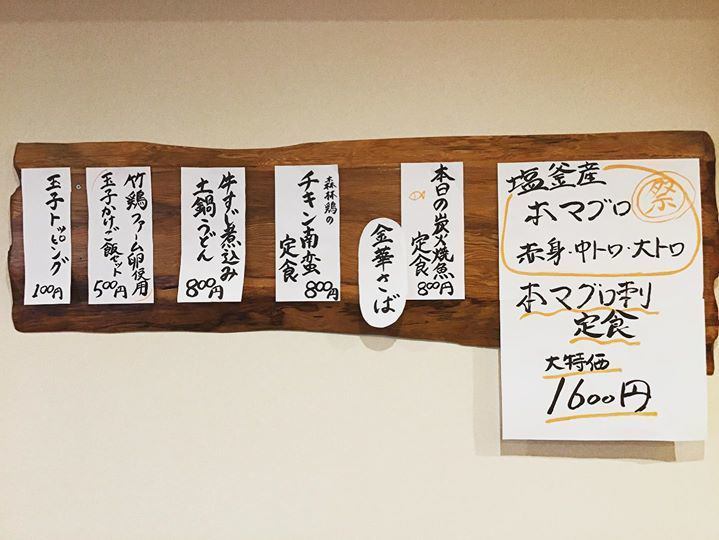 塩釜産
祭
本マグロ
赤身・中トロ・大トロ
本マグロ刺
定食
大特価
1600円
本日の炭火焼魚
定食
800円
金華さば
森林鶏の
チキン南蛮
定食
800円
牛すじ煮込み
土鍋うどん
800円
竹鶏ファーム卵使用
玉子かけご飯セット
500円
玉子トッピング
100円